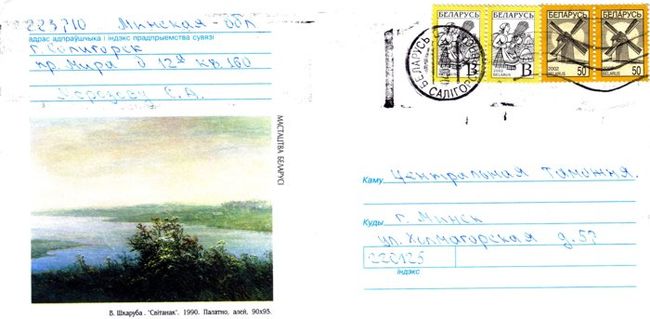 223710 Минская обл
адрас адпраўшчыка і індэкс прадпрыемства сувязі
г. Солигорск
пр. Мира д 12 кв 160
МАСТАЦТВА БЕЛАРУСІ
В. Шкаруба. "Світанак". 1990. Палатно, алей, 90x95.
БЕЛАРУСЬ
БЕЛАРУСЬ
БЕЛАРУСЬ
БЕЛАРУСЬ
В
2002
BELARUS
50
2002
BELARUS
50
БЕЛАРУСЬ
САЛІГОРСК
Каму Центральная Таможня.
Куды г. Минск
ул. д. 57
220125
індэкс